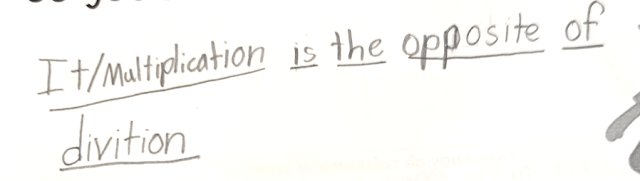 It/Multiplication is the opposite of
divition